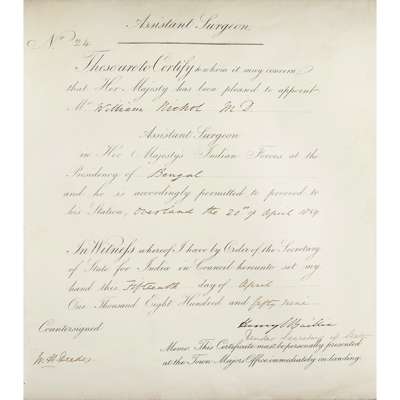 Assistant Surgeon
No. 24
These are to Certify to whom it may concern,
that Her Majesty has been pleased to appoint
Mr William Nichol M D
Assistant Surgeon
in Her Majesty's Indian Forces at the
Presidency of Bengal
and he is accordingly permitted to proceed to
his Station, Overland the 20th of April 1859
In Witness whereof I have by Order of the Secretary
of State for India in Council hereunto set my
hand this Fifteenth day of April
One Thousand Eight Hundred and fifty nine
Countersigned
Under Secretary of State
Memo: This Certificate must be personally presented
at the Town Majors Office immediately on landing.